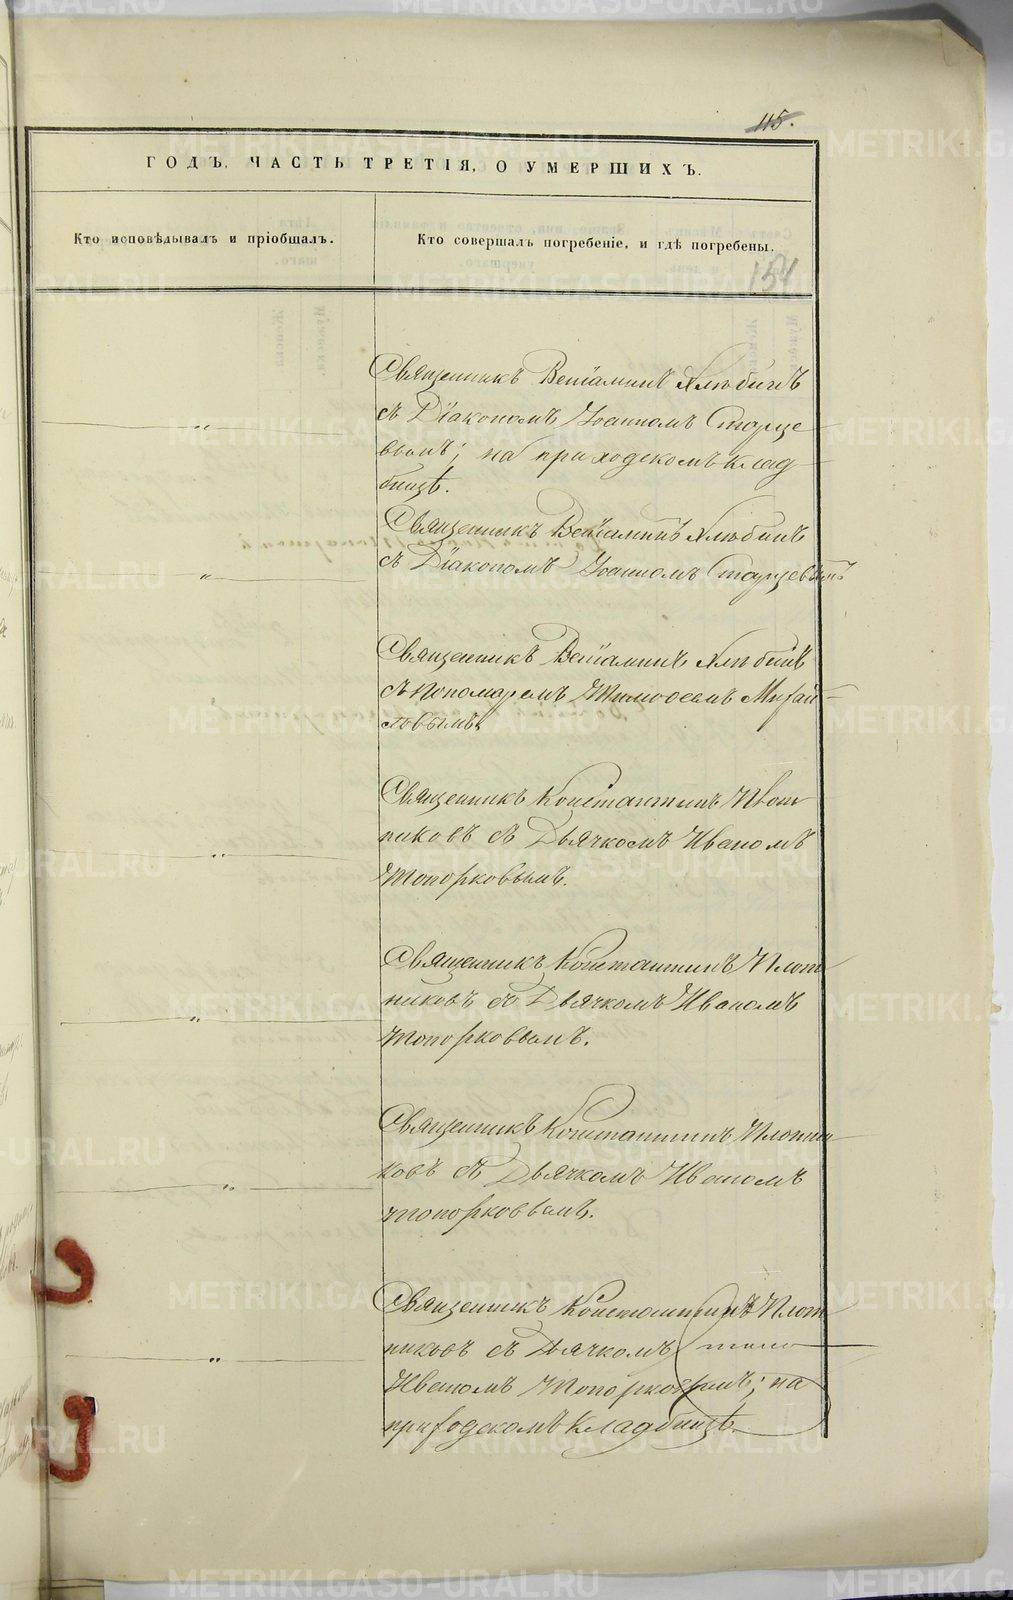 115.
ГОДЪ, ЧАСТЬ ТРЕТІЯ, О УМЕРШИХЪ.
Кто исповѣдывалъ и пріобщалъ.
Кто совершалъ погребеніе, и гдѣ погребены.
Священникъ Веніаминъ Хлѣбинъ
съ Діакономъ Іоанномъ Старце
вымъ; на приходскомъ клад
бищѣ.
„
Священникъ Веніаминъ Хлѣбинъ
съ Діакономъ Іоанномъ Старцевымъ
„
Священникъ Веніаминъ Хлѣбинъ
съ Пономаремъ Тимофеемъ Михай-
ловымъ.
Священникъ Константинъ Плот
никовъ съ Дьячкомъ Иваномъ
Топорковымъ.
„
Священникъ Константинъ Плот
никовъ съ Дьячкомъ Иваномъ
Топорковымъ.
„
Священникъ Константинъ Плотни
ковъ съ Дьячкомъ Иваномъ
Топорковымъ.
„
Священникъ Константинъ Плот
никовъ съ Дьячкомъ
Иваномъ Топорковымъ; на
приходскомъ кладбищѣ.
„
METRIKI.GASO-URAL.RU